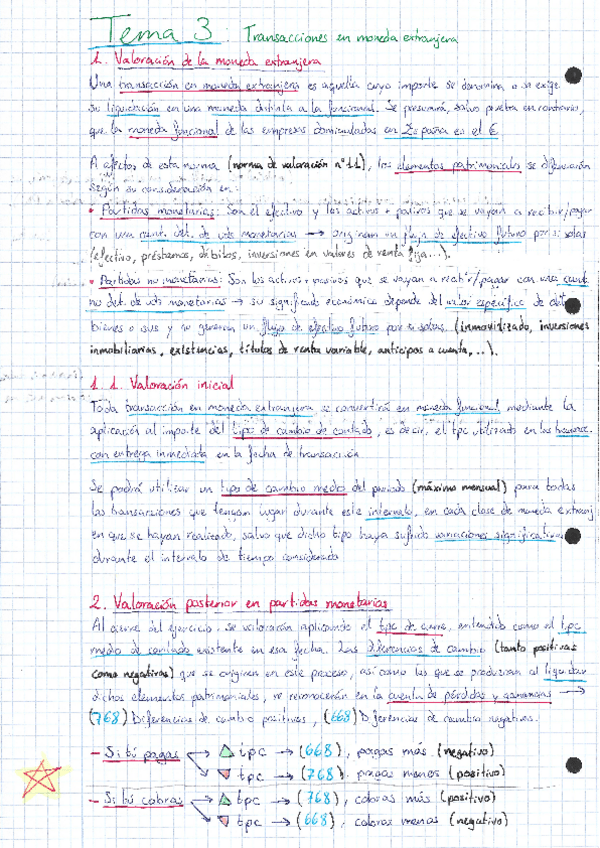 Tema 3: Transacciones en moneda extranjera
1. Valoración de la moneda extranjera
Una transacción en moneda extranjera es aquella cuyo importe se denomina o se exige
su liquidación en una moneda distinta a la funcional. Se presumirá, salvo prueba en contrario,
que la moneda funcional de las empresas domiciliadas en España es el €
A efectos de esta norma (norma de valoración nº 11), los elementos patrimoniales se diferencian
según su consideración en:
• Partidas monetarias: Son el efectivo y los activos + pasivos que se vayan a recibir/pagar
con una cant. det. de uds monetarias → originan un flujo de efectivo futuro por sí solas
(efectivo, préstamos, débitos, inversiones en valores de renta fija...).
• Partidas no monetarias: Son los activos + pasivos que se vayan a recibir/pagar con una cant.
no det. de uds monetarias → su significado económico depende del valor específico de
bienes o svs y no generan un flujo de efectivo futuro por sí solas. (inmovilizado, inversiones
inmobiliarias, existencias, títulos de renta variable, anticipos a cuenta,...).
1.1. Valoración inicial
Toda transacción en moneda extranjera se convertirá en moneda funcional mediante la
aplicación al importe del tipo de cambio de contado, es decir, el tpc utilizado en las
con entrega inmediata en la fecha de transacción
Se podrá utilizar un tipo de cambio medio del periodo (máximo mensual) para todas
las transacciones que tengan lugar durante este intervalo, en cada clase de moneda extranj
en que se hayan realizado, salvo que dicho tipo haya sufrido variaciones significativas
durante el intervalo de tiempo considerado
2. Valoración posterior en partidas monetarias
Al cierre del ejercicio se valorarán aplicando el tpc de cierre, entendido como el tpc
medio de contado existente en esa fecha. Las diferencias de cambio (tanto positivas
como negativas) que se originen en este proceso, así como las que se produzcan al liquidar
dichos elementos patrimoniales, se reconocerán en la cuenta de pérdidas y ganancias →
(768) Diferencias de cambio positivas, (668) Diferencias de cambio negativas.
- Si tú pagas → △ tpc → (668), pagas más (negativo)
→ ▽ tpc → (768) pagas menos (positivo)
- Si tú cobras → △ tpc → (768), cobras más (positivo)
→ ▽ tpc → (668), cobras menos (negativo)